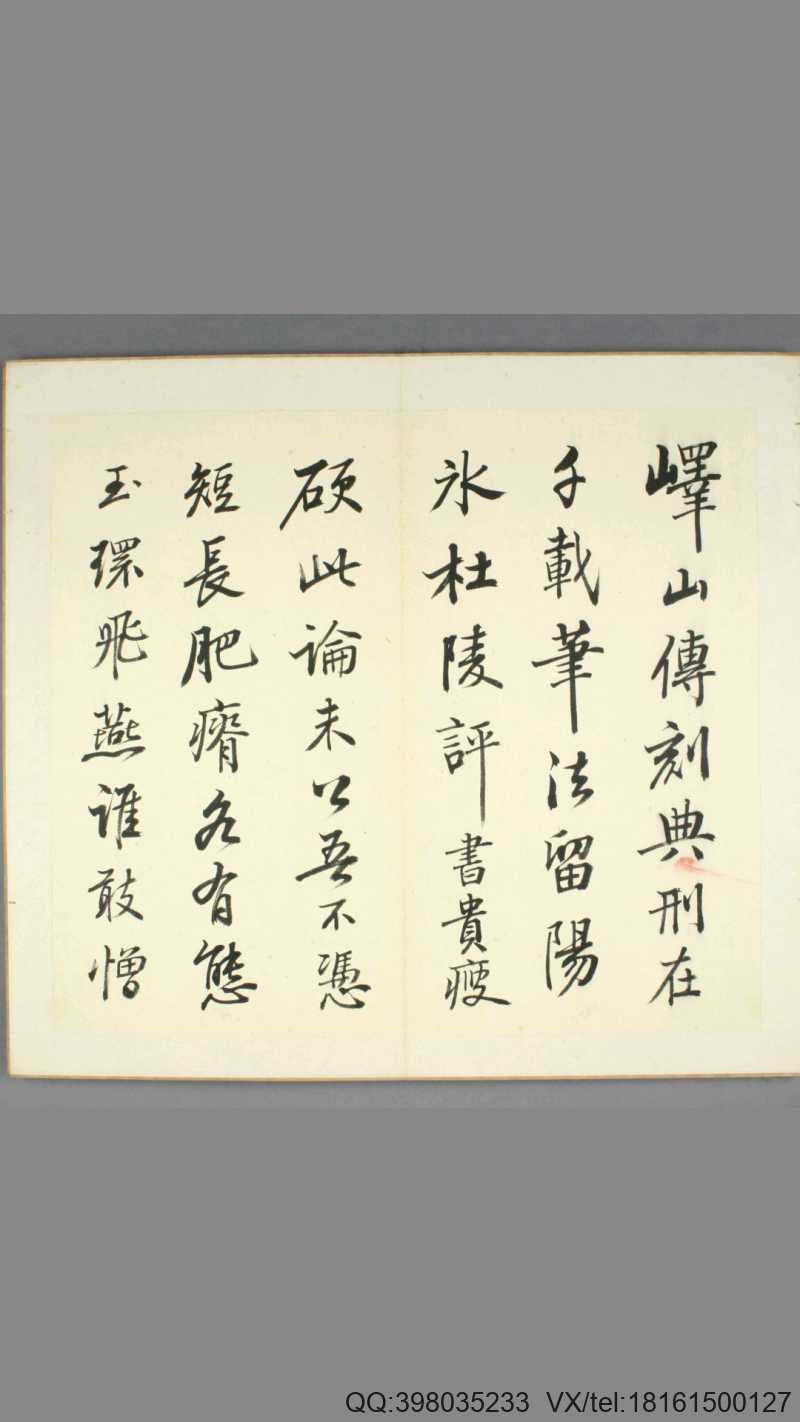 嶧山傳刻典刑在
千載筆法留陽
氷杜陵評書貴瘦
硬此論未公吾不憑
短長肥瘠各有態
玉環飛燕誰敢憎
QQ:398035233 VX/tel:18161500127